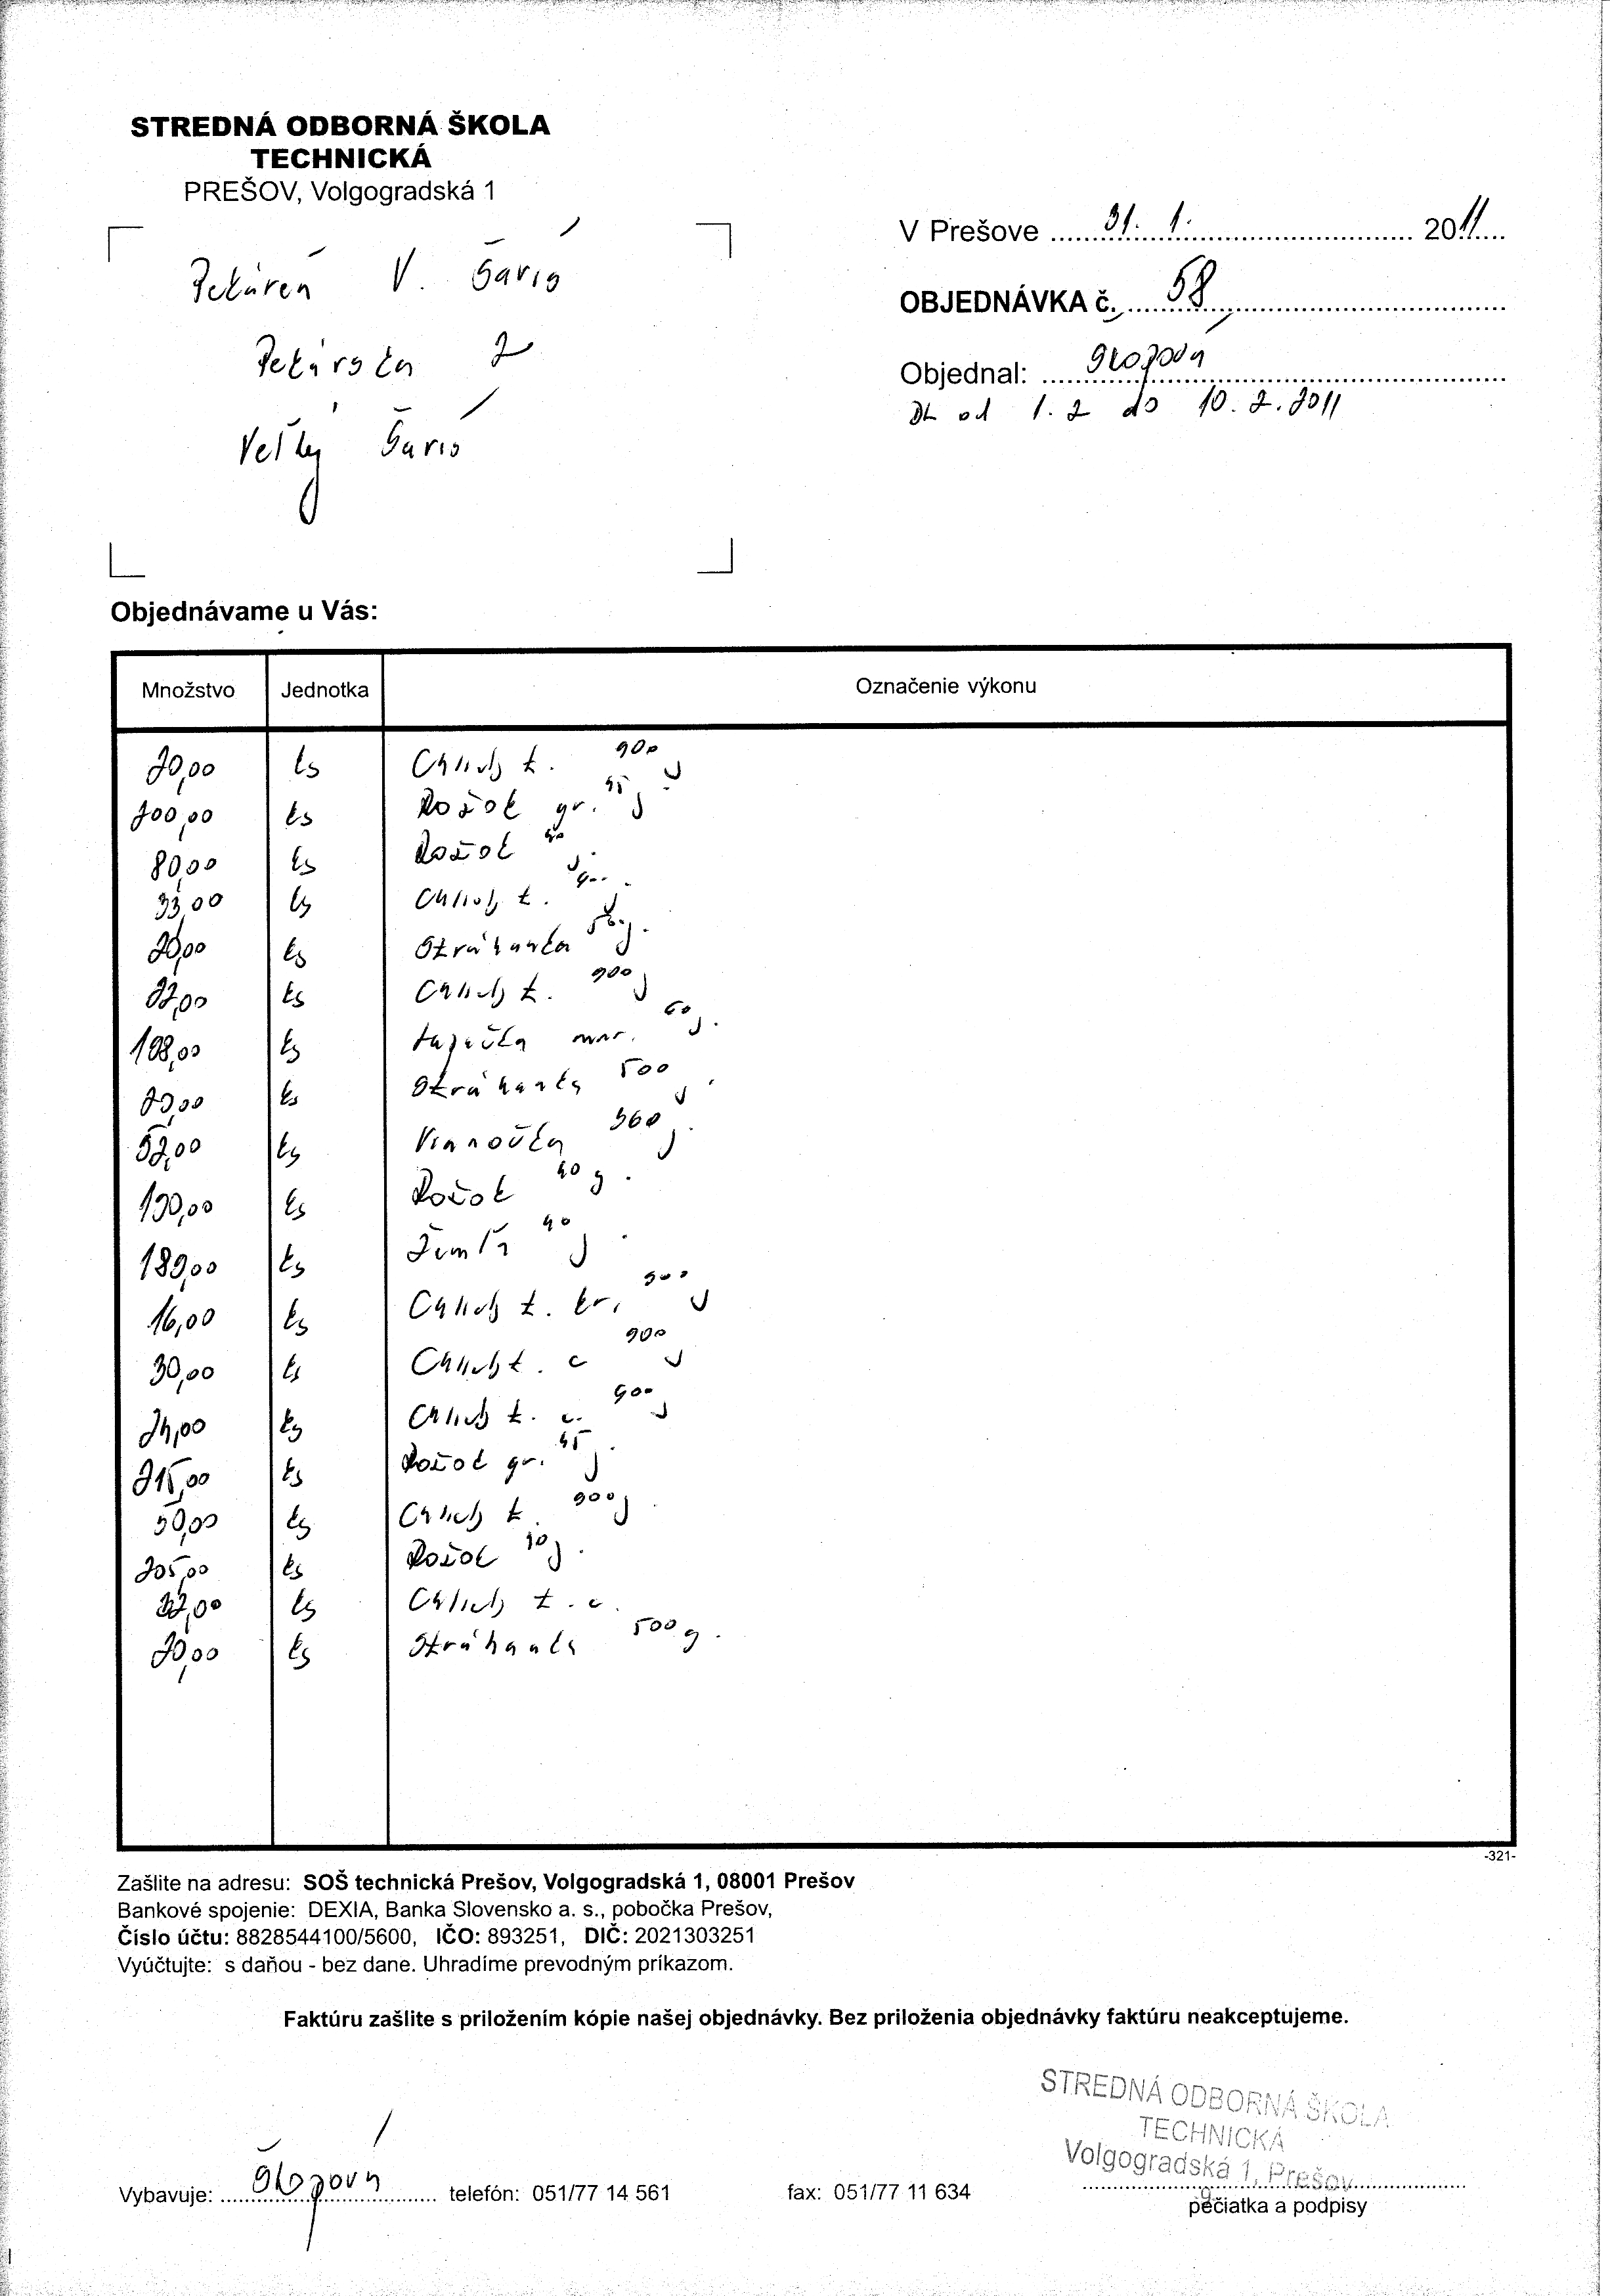 STREDNÁ ODBORNÁ ŠKOLA
TECHNICKÁ
PREŠOV, Volgogradská 1
V Prešove 31. 1. 2011
Pekáreň V. Šariš
OBJEDNÁVKA č. 58
Pekárska 2
Objednal:
DL od 1. 2 do 10. 2. 2011
Veľký Šariš
Objednávame u Vás:
Množstvo Jednotka Označenie výkonu
20,00 ks Chlieb k. 900 g
200,00 ks Rožok gr. 45 g
80,00 ks Rožok 40 g
33,00 ks Chlieb k. 900
20,00 ks Strúhanka g.
ks Chlieb k. 900 g
108,00 ks mar. 60 g.
ks Strúhanka 500 g
ks Vianočka 360 g.
130,00 ks Rožok 40 g.
180,00 ks Žemľa 40 g
16,00 ks Chlieb k. kr. 900 g
30,00 ks Chlieb k. c 900 g
24,00 ks Chlieb k. c. 900 g
215,00 ks Rožok gr. 45 g
50,00 ks Chlieb k. 900 g
205,00 ks Rožok 40 g.
ks Chlieb k. c.
20,00 ks Strúhanka 500 g.
-321-
Zašlite na adresu: SOŠ technická Prešov, Volgogradská 1, 08001 Prešov
Bankové spojenie: DEXIA, Banka Slovensko a. s., pobočka Prešov,
Číslo účtu: 8828544100/5600, IČO: 893251, DIČ: 2021303251
Vyúčtujte: s daňou - bez dane. Uhradíme prevodným príkazom.
Faktúru zašlite s priložením kópie našej objednávky. Bez priloženia objednávky faktúru neakceptujeme.
STREDNÁ ODBORNÁ ŠKOLA
TECHNICKÁ
Volgogradská 1, Prešov
Vybavuje: telefón: 051/77 14 561 fax: 051/77 11 634
pečiatka a podpisy